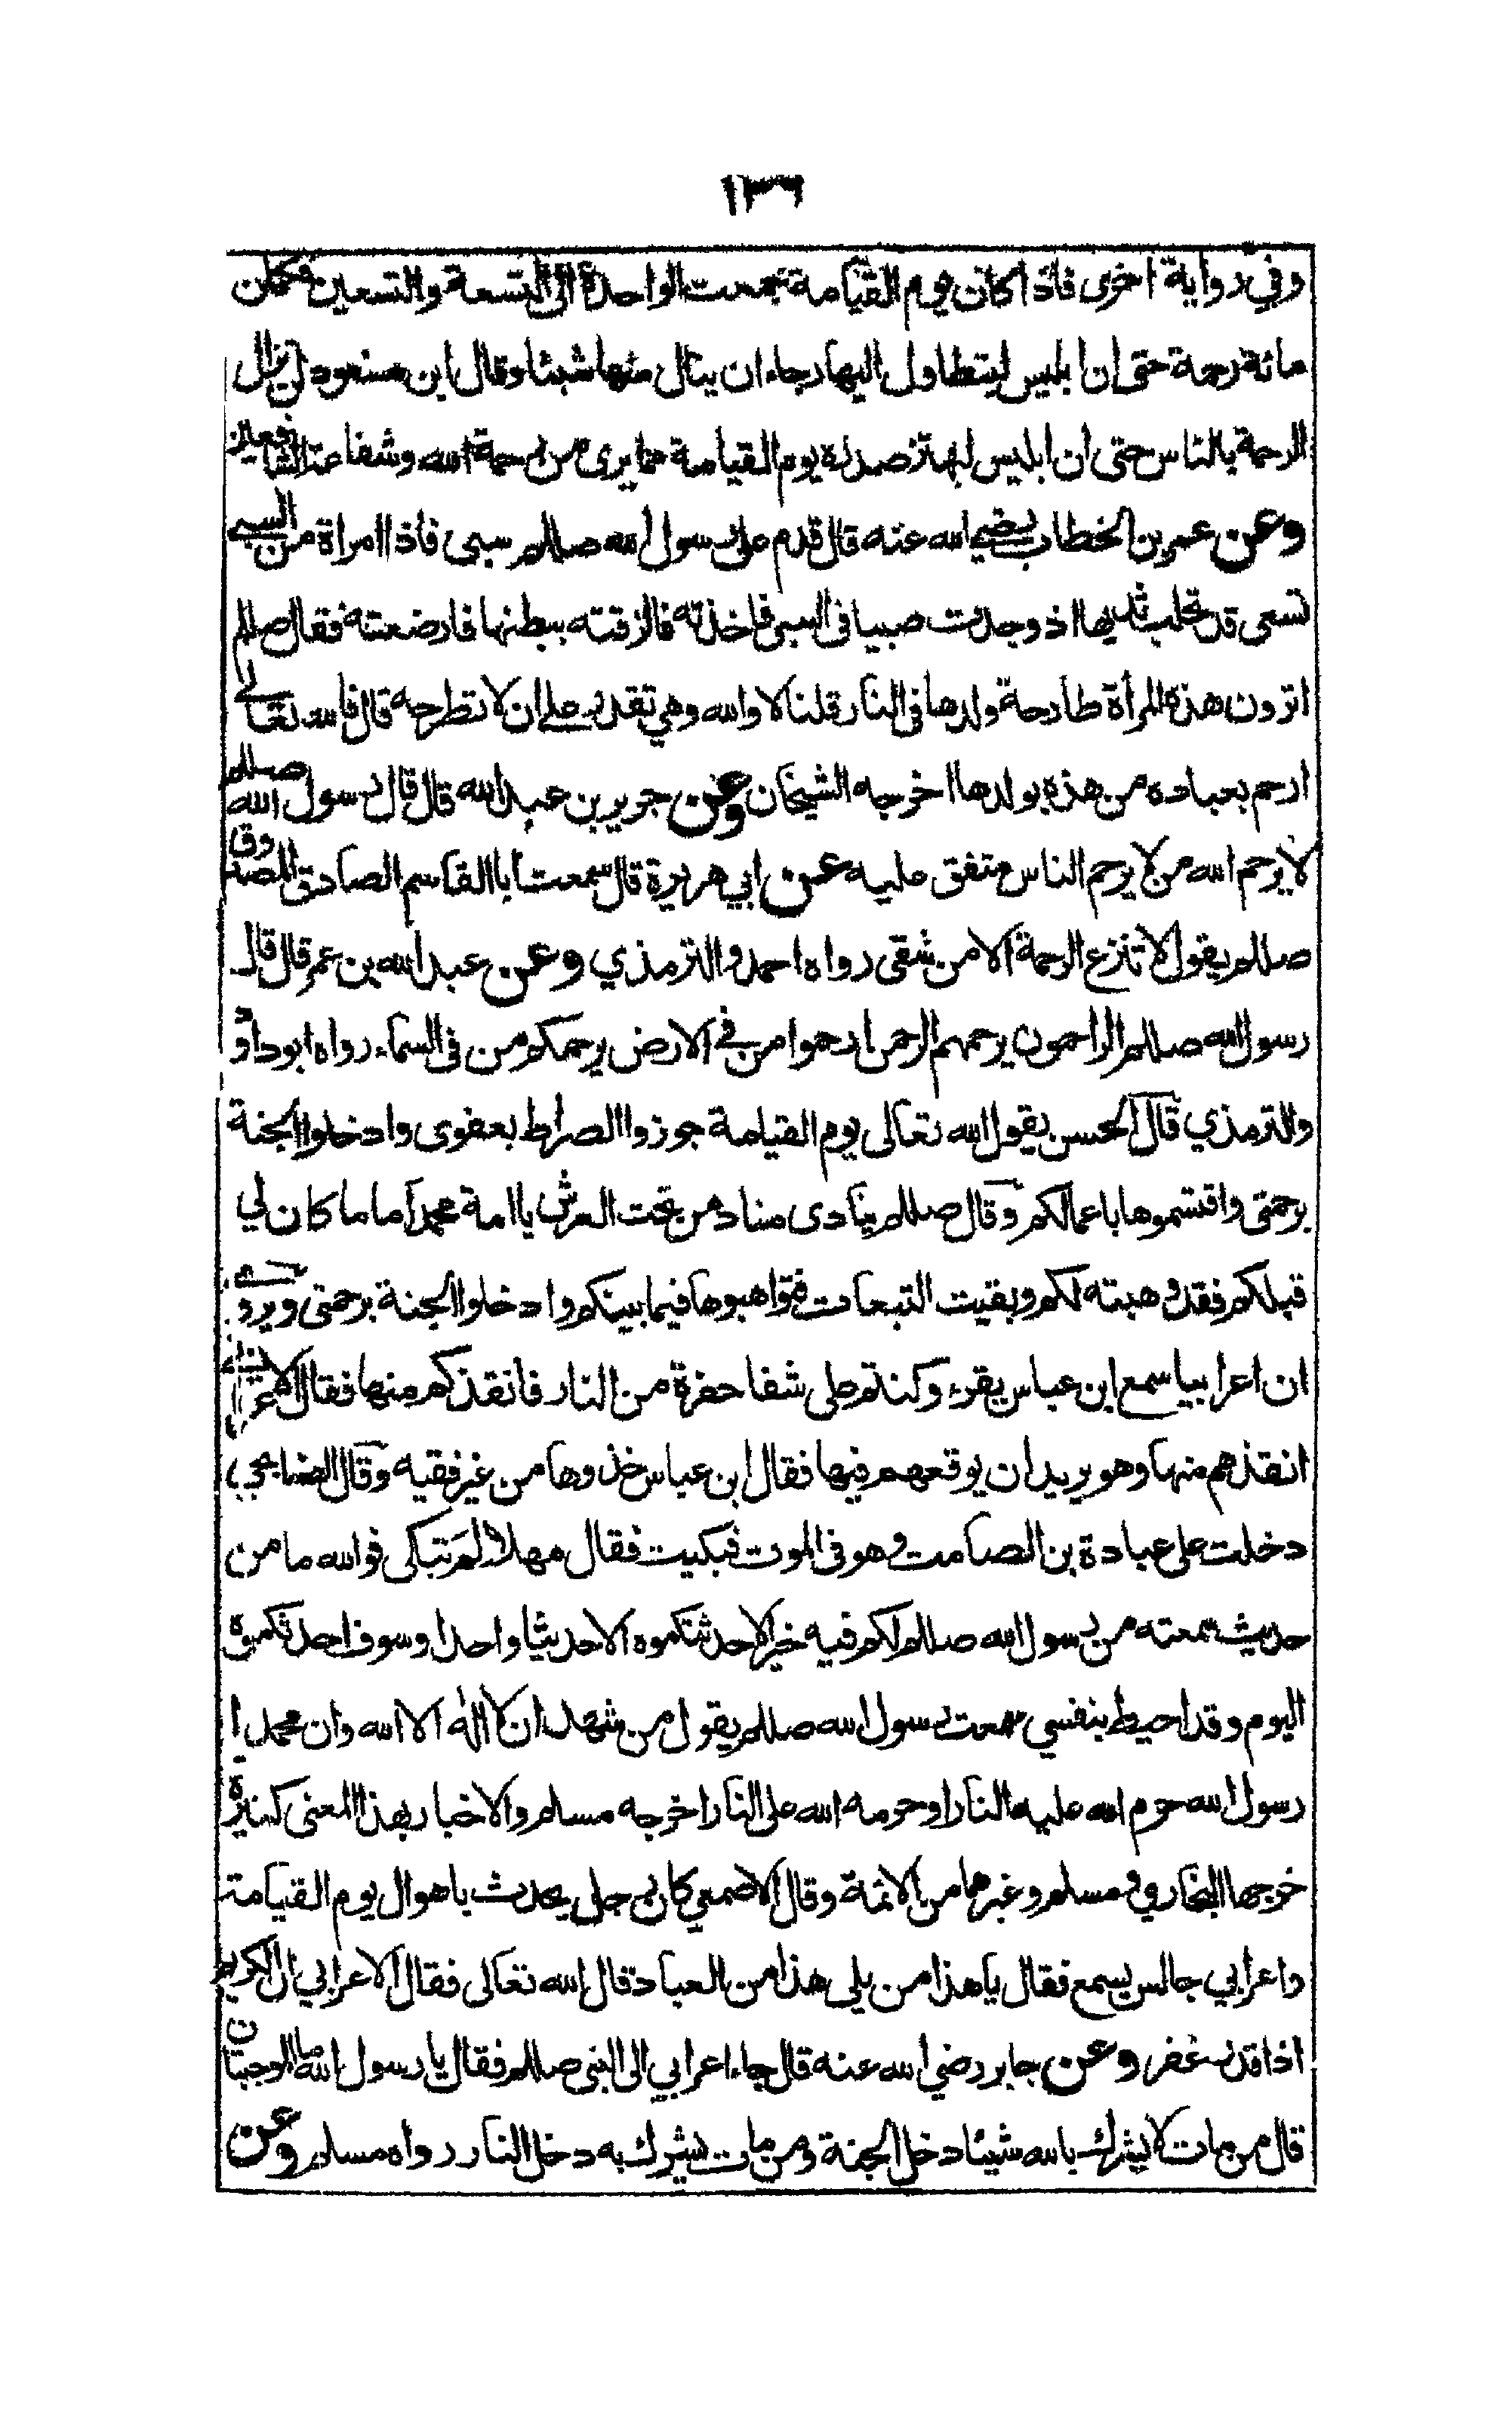 ١٣٦
وفي رواية اخرى فاذا كان يوم القيامة جمعت الواحدة الى التسعة والتسعين فكملن
مائة رحمة حتى ان ابليس ليتطاول اليها رجاء ان ينال منها شيئا وقال ابن مسعود لن يزال
الرحمة بالناس حتى ان ابليس ليهتز صدره يوم القيامة مما يرى من رحمة الله وشفاعة الشافعين
وعن عمر بن الخطاب رضي الله عنه قال قدم على رسول الله صللم سبى فاذا امراة من السبي
تسعى قد تحلب ثديها اذ وجدت صبيا فى السبى فاخذته فالزقته ببطنها فارضعته فقال صللم
اترون هذه المرأة طارحة ولدها فى النار قلنا لا والله وهي تقدر على ان لا تطرحه قال فالله تعالى
ارحم بعباده من هذه بولدها اخرجه الشيخان وعن جرير بن عبد الله قال قال رسول الله صللم
لا يرحم الله من لا يرحم الناس متفق عليه عن ابي هريرة قال سمعت ابا القاسم الصادق المصدوق
صللم يقول لا تنزع الرحمة الا من شقى رواه احمد والترمذي وعن عبد الله بن عمر قال قال
رسول الله صللم الراحمون يرحمهم الرحمن ارحموا من في الارض يرحمكم من فى السماء رواه ابو داؤد
والترمذي قال الحسن يقول الله تعالى يوم القيامة جوزوا الصراط بعفوى وادخلوا الجنة
برحمتى واقتسموها باعمالكم وقال صللم ينادى مناد من تحت العرش يا امة محمد اما ما كان لي
قبلكم فقد وهبته لكم وبقيت التبعات فتواهبوها فيما بينكم وادخلوا الجنة برحمتى ويروى
ان اعرابيا سمع ابن عباس يقرء وكنتم على شفا حفرة من النار فانقذكم منها فقال الاعرابي
انقذهم منها وهو يريد ان يوقعهم فيها فقال ابن عباس خذوها من غير فقيه وقال الصنابحي
دخلت على عبادة بن الصامت وهو فى الموت فبكيت فقال مهلا لم تبكى فوالله ما من
حديث سمعته من رسول الله صللم لكم فيه خير الا حدثتكموه الا حديثا واحدا وسوف احدثكموه
اليوم وقد احيط بنفسي سمعت رسول الله صللم يقول من شهد ان لا اله الا الله وان محمدا
رسول الله حرم الله عليه النار او حرمه الله على النار اخرجه مسلم والاخبار بهذا المعنى كثيرة
خرجها البخاري ومسلم وغيرهما من الائمة وقال الاصمعي كان رجل يحدث باهوال يوم القيامة
واعرابي جالس يسمع فقال يا هذا من يلى هذا من العباد قال الله تعالى فقال الاعرابي ان الكريم
اذا قدر غفر وعن جابر رضي الله عنه قال جاء اعرابي الى النبى صللم فقال يا رسول الله ما الموجبتان
قال من مات لا يشرك بالله شيئا دخل الجنة ومن مات يشرك به دخل النار رواه مسلم وعن